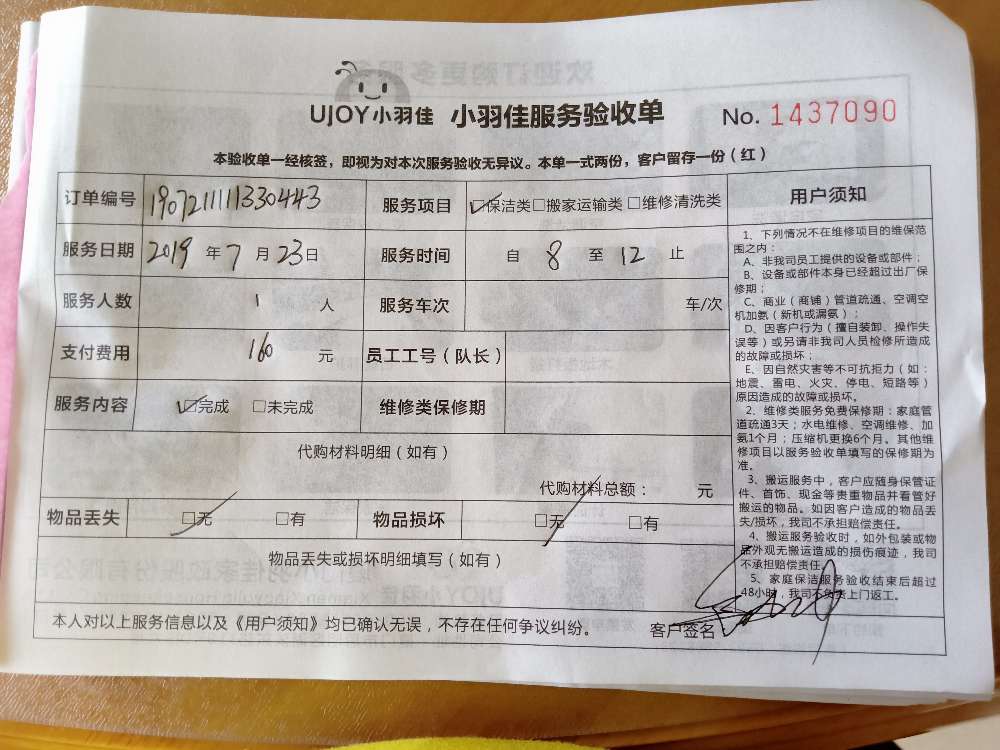 UJOY小羽佳 小羽佳服务验收单 No. 1437090
本验收单一经核签，即视为对本次服务验收无异议。本单一式两份，客户留存一份（红）
订单编号 190721111330443 服务项目 ☑保洁类□搬家运输类□维修清洗类
服务日期 2019年7月23日 服务时间 自 8 至 12 止
服务人数 1 人 服务车次 车/次
支付费用 160 元 员工工号（队长）
服务内容 ☑完成 □未完成 维修类保修期
代购材料明细（如有）
代购材料总额： 元
物品丢失 ☑无 □有 物品损坏 ☑无 □有
物品丢失或损坏明细填写（如有）
本人对以上服务信息以及《用户须知》均已确认无误，不存在任何争议纠纷。 客户签名
用户须知
1、下列情况不在维修项目的维保范
围之内：
A、非我司员工提供的设备或部件；
B、设备或部件本身已经超过出厂保
修期；
C、商业（商铺）管道疏通、空调空
机加氨（新机或漏氨）；
D、因客户行为（擅自装卸、操作失
误等）或另请非我司人员检修所造成
的故障或损坏；
E、因自然灾害等不可抗拒力（如：
地震、雷电、火灾、停电、短路等）
原因造成的故障或损坏。
2、维修类服务免费保修期：家庭管
道疏通3天；水电维修、空调维修、加
氨1个月；压缩机更换6个月。其他维
修项目以服务验收单填写的保修期为
准。
3、搬运服务中，客户应随身保管证
件、首饰、现金等贵重物品并看管好
搬运的物品。如因客户造成的物品丢
失/损坏，我司不承担赔偿责任。
4、搬运服务验收时，如外包装或物
品外观无搬运造成的损伤痕迹，我司
不承担赔偿责任。
5、家庭保洁服务验收结束后超过
48小时，我司不负责上门返工。